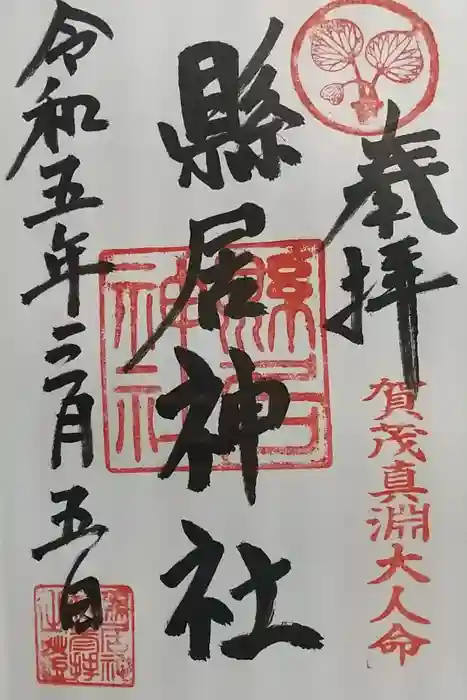 奉拝
賀茂真淵大人命
縣居神社
縣居神社
令和五年三月五日